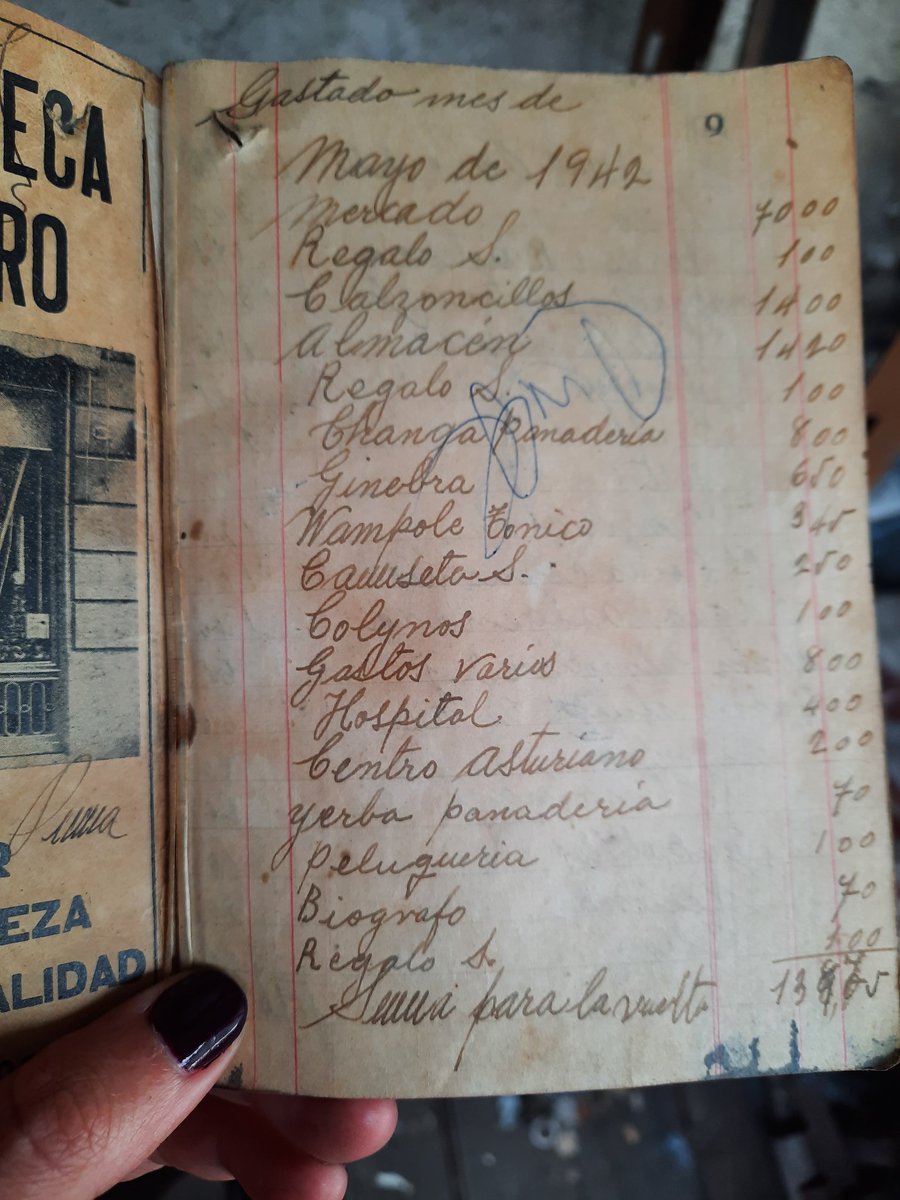 ECA
RO
Suma
R
EZA
ALIDAD
Gastado mes de
9
Mayo de 1942
Mercado 7000
Regalo S. 100
Calzoncillos 1400
Almacén 1420
Regalo S. 100
Changa panaderia 800
Ginebra 650
Wampole tonico 345
Camiseta S. 250
Colynos 100
Gastos varios 800
Hospital 400
Centro Asturiano 200
yerba panaderia 70
Peluqueria 100
Biografo 70
Regalo S. 100
Suma para la vuelta